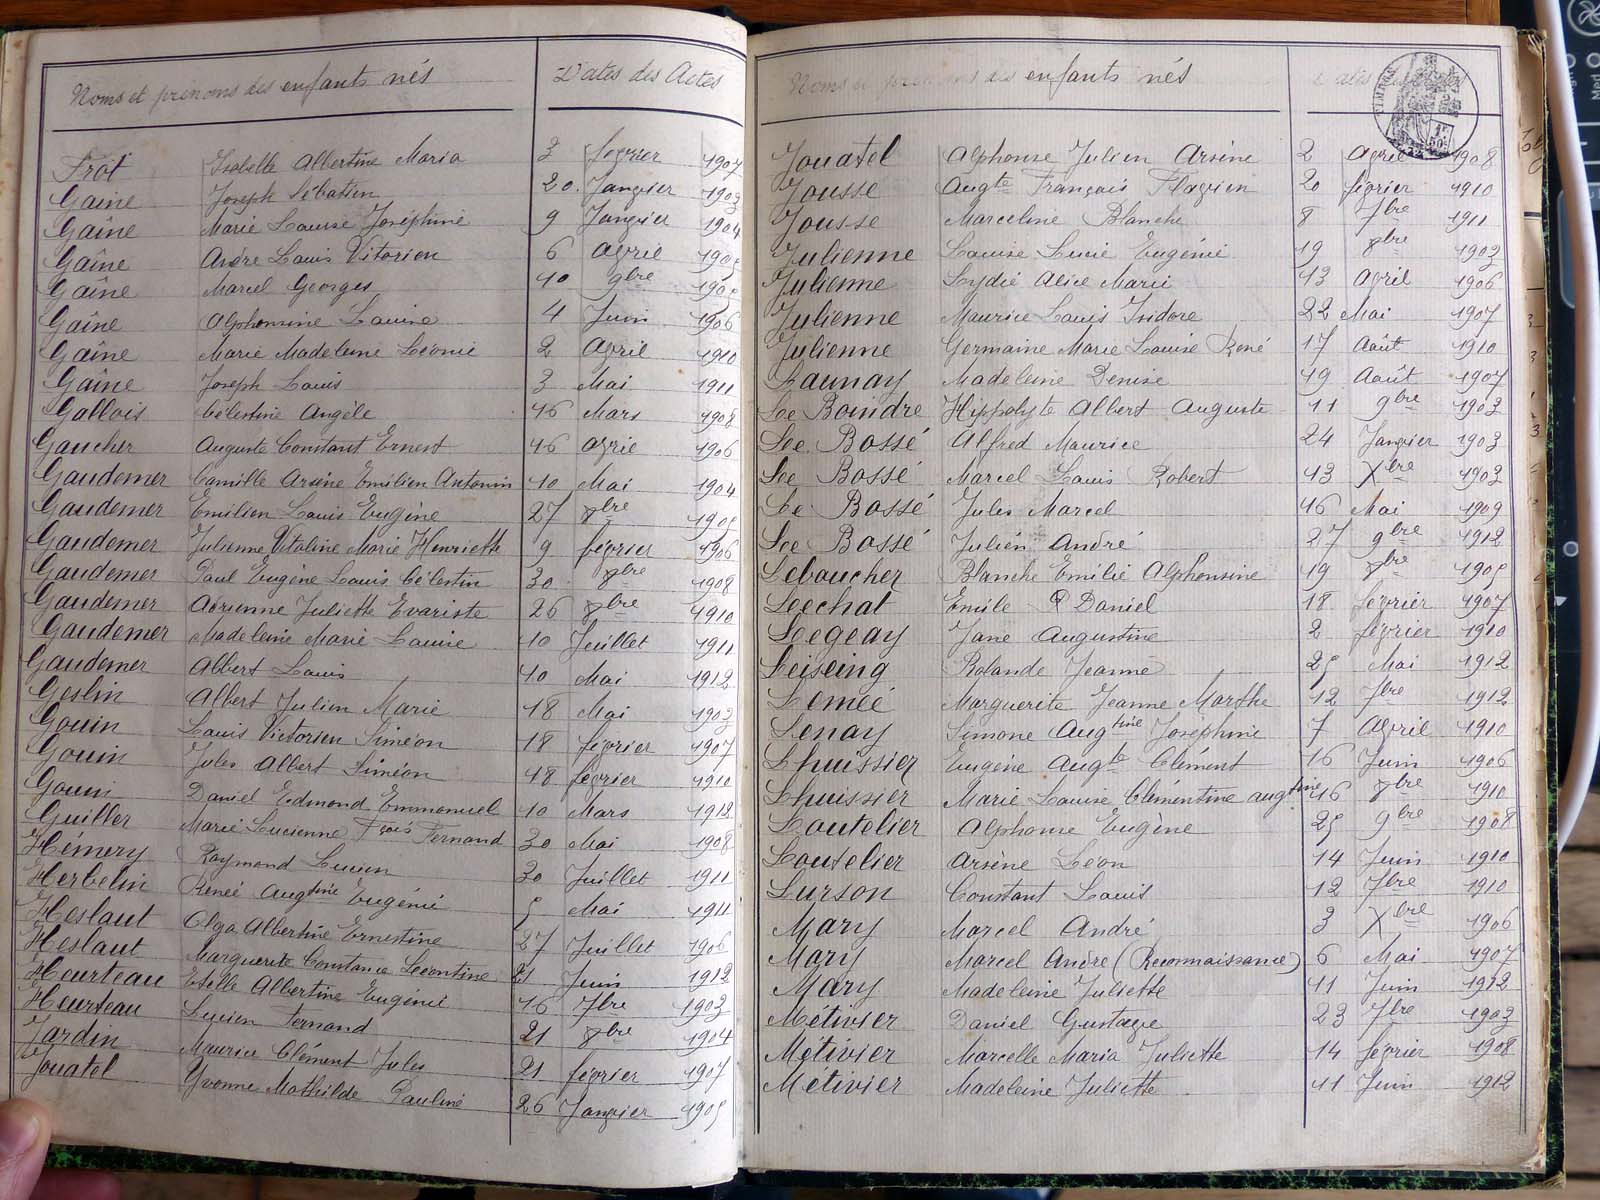 Noms et prénoms des enfants nés Dates des Actes
Frot Isabelle Albertine Maria 3 février 1907
Gaîne Joseph Sébastien 20 Janvier 1903
Gaîne Marie Louise Joséphine 9 Janvier 1904
Gaîne André Louis Vitorien 6 Avril 1905
Gaîne Marcel Georges 10 9bre 1905
Gaîne Alphonsine Louise 4 Juin 1906
Gaîne Marie Madeleine Léonie 2 Avril 1910
Gaîne Joseph Louis 3 Mai 1911
Gallois Célestine Angèle 16 Mars 1908
Gaucher Auguste Constant Ernest 16 Avril 1906
Gaudemer Camille Arsène Emilien Antonin 10 Mai 1904
Gaudemer Emilien Louis Eugène 27 8bre 1905
Gaudemer Julienne Vitaline Marie Henriette 9 février 1906
Gaudemer Paul Eugène Louis Célestin 30 8bre 1908
Gaudemer Adrienne Juliette Evariste 26 8bre 1910
Gaudemer Madeleine Marie Louise 10 Juillet 1911
Gaudemer Albert Louis 10 Mai 1912
Geslin Albert Julien Marie 18 Mai 1903
Gouin Louis Victorien Siméon 18 février 1907
Gouin Jules Albert Siméon 18 février 1910
Gouin Daniel Edmond Emmanuel 10 Mars 1912
Guiller Marie Lucienne Fçois Fernand 30 Mai 1908
Hémery Raymond Lucien 30 Juillet 1911
Herbelin Renée Augtine Eugénie 5 Mai 1911
Heslaut Olga Albertine Ernestine 27 Juillet 1906
Heslaut Marguerite Constance Léontine 21 Juin 1912
Heurteau Estelle Albertine Eugénie 16 7bre 1903
Heurteau Lucien Fernand 21 8bre 1904
Jardin Maurice Clément Jules 21 février 1907
Jouatel Yvonne Mathilde Pauline 26 Janvier 1905
Noms et prénoms des enfants nés
Jouatel Alphonse Julien Arsène 2 Avril 1908
Jousse Augte François Flavien 20 février 1910
Jousse Marceline Blanche 8 7bre 1911
Julienne Louise Lucie Eugénie 19 8bre 1903
Julienne Lydie Alice Marie 13 Avril 1906
Julienne Maurice Louis Isidore 22 Mai 1907
Julienne Germaine Marie Louise René 17 Août 1910
Launay Madeleine Denise 19 Août 1907
Le Boindre Hippolyte Albert Auguste 11 9bre 1903
Le Bossé Alfred Maurice 24 Janvier 1903
Le Bossé Marcel Louis Robert 13 Xbre 1903
Le Bossé Jules Marcel 16 Mai 1909
Le Bossé Julien André 27 9bre 1912
Leboucher Blanche Emilie Alphonsine 19 8bre 1905
Lechat Emile Daniel 18 février 1907
Legeay Jane Augustine 2 février 1910
Leiseing Rolande Jeanne 25 Mai 1912
Lemée Marguerite Jeanne Marthe 12 7bre 1912
Lenay Simone Augtine Joséphine 7 Avril 1910
Lhuissier Eugène Augte Clément 16 Juin 1906
Lhuissier Marie Louise Clémentine augtine 16 8bre 1910
Loutelier Alphonse Eugène 25 9bre 1908
Loutelier Arsène Léon 14 Juin 1910
Lurson Constant Louis 12 7bre 1910
Mary Marcel André 3 Xbre 1906
Mary Marcel André (Reconnaissance) 6 Mai 1907
Mary Madeleine Juliette 11 Juin 1912
Métivier Daniel Gustave 23 7bre 1903
Métivier Marcelle Maria Juliette 14 février 1908
Métivier Madeleine Juliette 11 Juin 1912